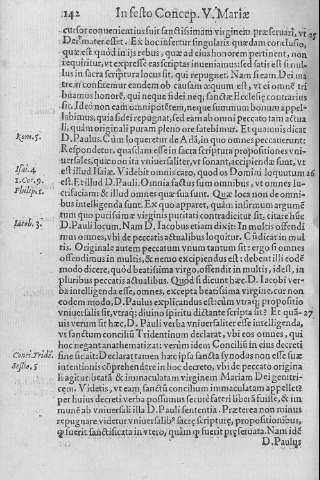 142 In festo Concep. V. Mariæ
cursor conuenientius fuit sanctissimam virginem præseruari, vt 25
Dei mater esset. Ex hoc infertur singularis quædam conclusio,
quæ est quod in ijs rebus, quæ ad eius honorem pertinent, non
requiritur, vt expresse eas scriptas inueniamus, sed satis est si nul-
lus in sacra scriptura locus sit, qui repugnet. Nam si eam Dei ma
trem confitemur eandem ob causam æquum est, vt ei omne tri
buamus honorē, qui neque fidei neq; sanctæ Ecclesiæ contrarius
sit. Ideo non eam omnipotētem, neque summum bonum appel-
labimus, quia fidei repugnat, sed eam ab omni peccato tam actua
li, quàm originali puram pleno ore fatebimur. Et quamuis dicat
Rom. 5. D. Paulus. Cùm loqueretur de Adā, in quo omnes peccauerunt:
Respondetur. quasdam esse in sacra scriptura propositiones vni
uersales, quæ non ita vniuersaliter, vt sonant, accipiendæ sunt, vt
Isai. 4 est illud Isaiæ. Videbit omnis caro, quod os Domini loquutum 26
1. Cor. 9. est. Et illud D. Pauli. Omnia factus sum omnibus, vt omnes lu-
Philip. 2. crifaciam: & illud omnes quæ sua sunt. Quæ loca non de omni-
bus intelligenda sunt. Ex quo apparet, quàm infirmum argumē
tum quo purissimæ virginis puritati contradicitur sit, citare hūc
Iacob. 3. D. Pauli locum. Nam D. Iacobus etiam dixit: In multis offendi
mus omnes, vbi de peccatis actualibus loquitur. Cùm dicat in mul
tis. Originale autem peccatum vnum tantum sit: ergo si omnes
offendimus in multis, & nemo excipiendus est: debent illi eodē
modo dicere, quòd beatissima virgo, offendit in multis, idest, in
pluribus peccatis actualibus. Quòd si dicunt hæc D. Iacobi ver-
ba intelligenda esse, omnes, excepta beatissima virgine, cur non
eodem modo, D. Paulus explicandus est: cùm vtraq; propositio
vniuersalis sit, vtraq; diuino spiritu dictante scripta sit? Et quā- 27
uis verum sit hæc, D. Pauli verba vniuersaliter esse intelligenda,
vt sanctum conciliū Tridentinum declarat, vbi eos omnes, qui
hoc negant anathematizat: verùm idem Concilium in eius decreti
Conci. Tridē. fine sic ait: Declarat tamen hæc ipsa sancta synodus non esse suæ
sessio. 5 intentionis cōprehendere in hoc decreto, vbi de peccato origina
li agitur beatā & immaculatam virginem Mariam Dei genitri-
cem. Videtis, vt eam sanctū concilium immaculatam appellet?
per huius decreti verba possumus securè fateri liberā fuisse, & im
munē ab vniuersali illa D. Pauli sententia. Præterea non minus
repugnare videtur vniuersalibꝰ sacrę scripturę, propositionibus,
ꝙ fuerit sanctificata in vtero, quàm ꝙ fuerit pręseruata. Nam idē
D. Paulus